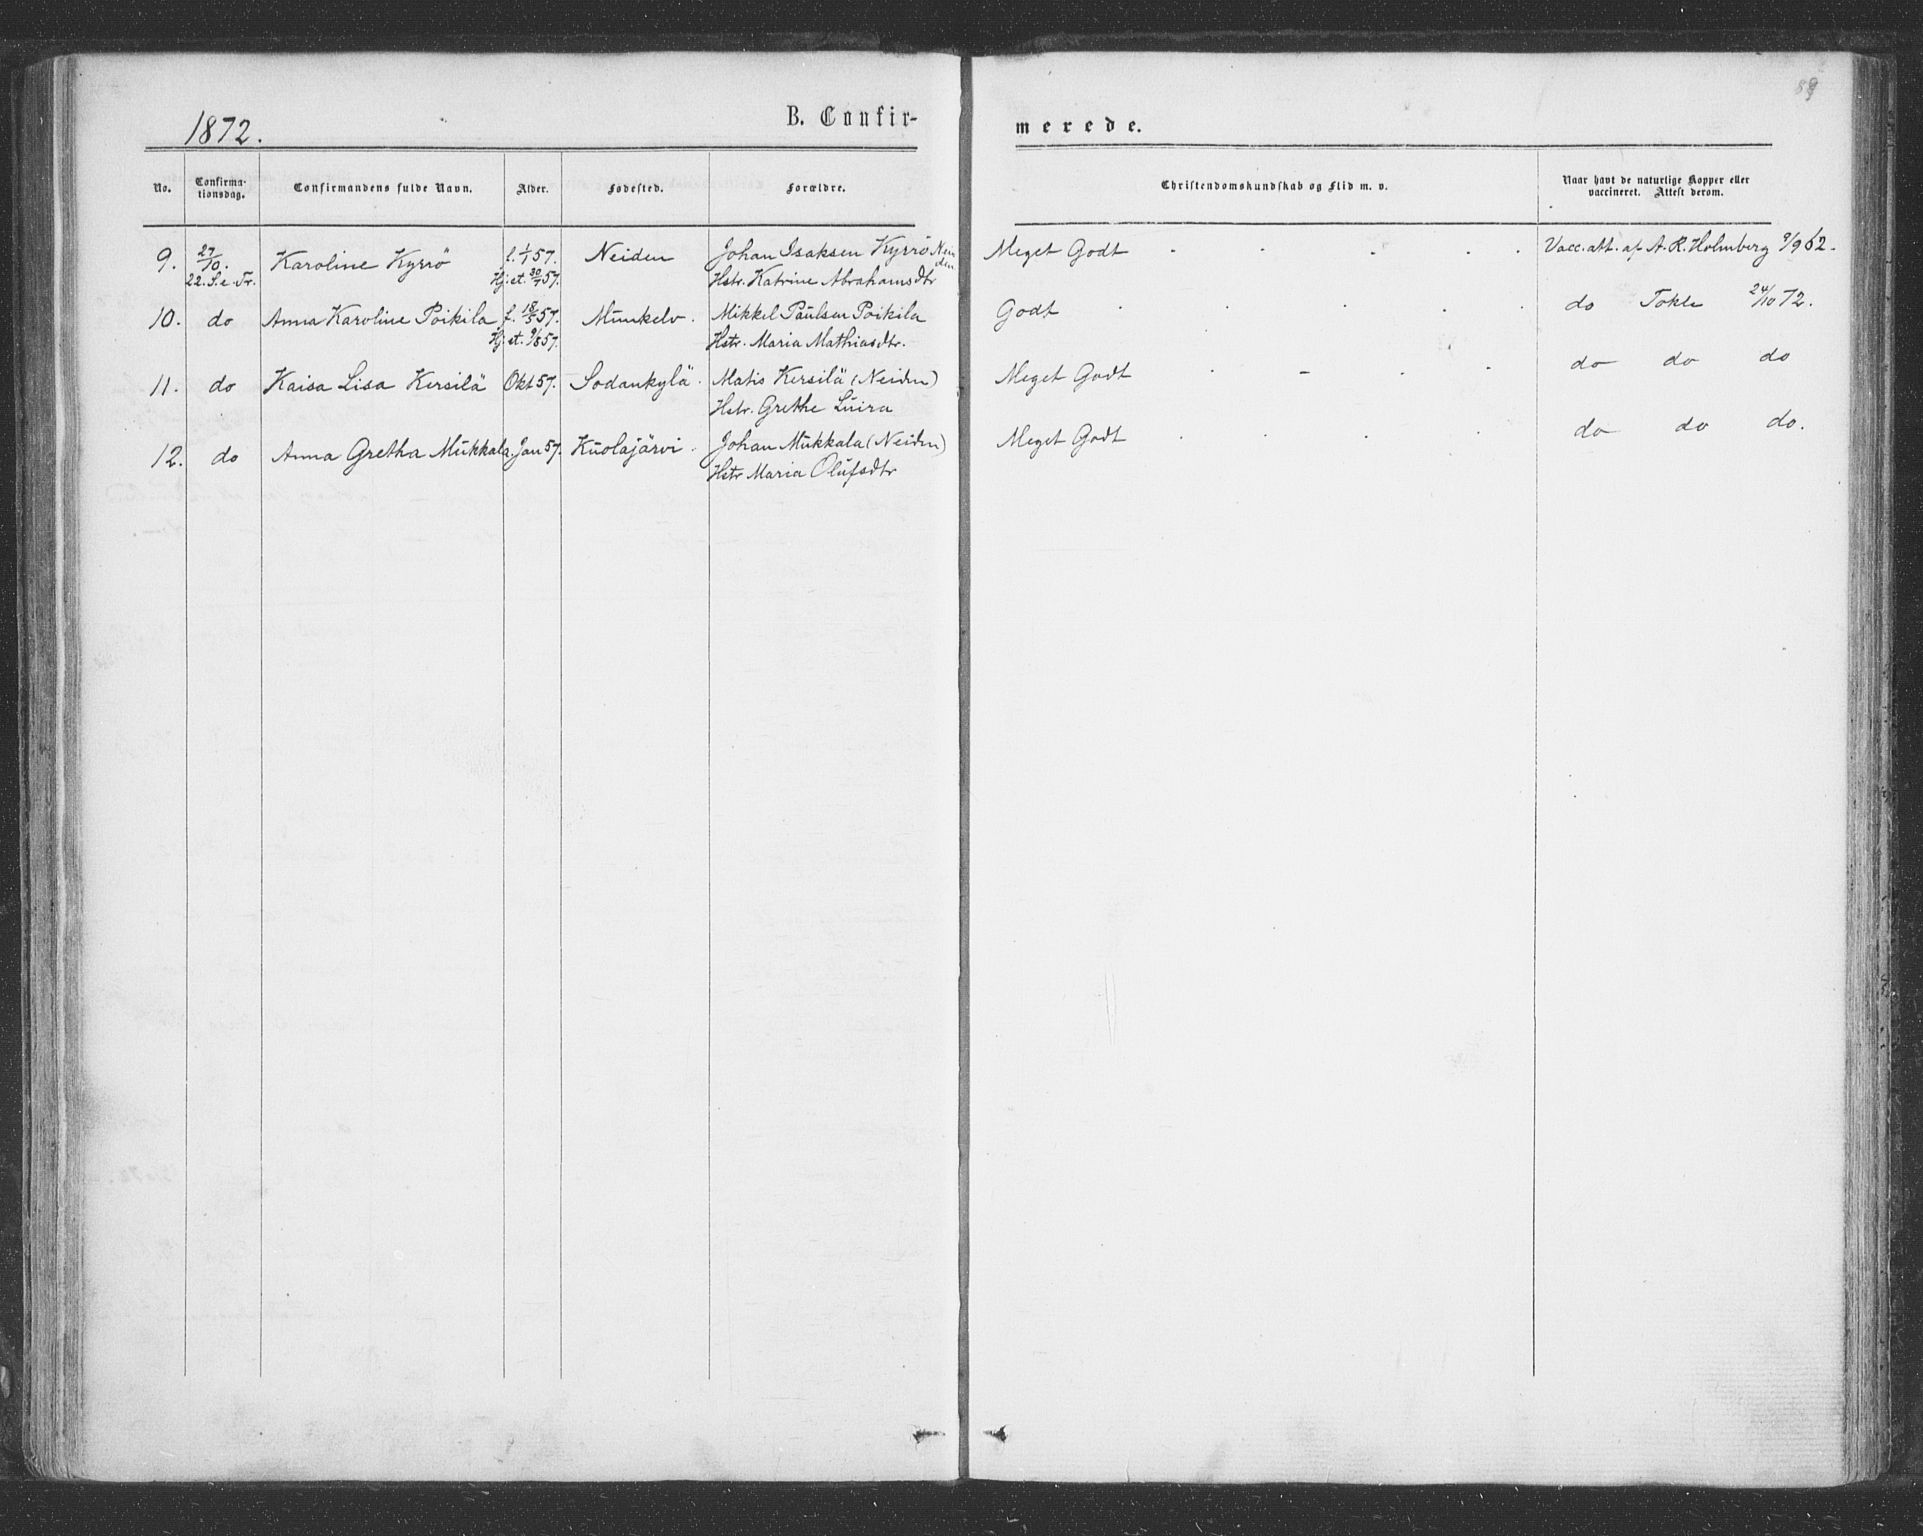 89
1872.
B. Confir-
merede.
No.
Confirma-
tionsdag.
Confirmandens fulde Navn.
Alder.
Fødested.
Forældre.
Christendomskundskab og Flid m. v.
Naar havt de naturlige Kopper eller
vaccineret. Attest derom.
9. 27/10. Karoline Kyrrö f. 1/1 57. Neiden Johan Isaksen Kyrrö Nei- Meget Godt Vacc. att. af A. R. Holmberg 9/9 62.
22. S. e. Tr. Hj. st. 57. Hstr. Katrine Abrahamsdtr den
10. do Anna Karoline Poikila f. 18/5 57. Munkelv. Mikkel Paulsen Poikila Godt do Tokle 24/10 72.
Hj. st. 9/8 57. Hstr. Maria Mathiasdtr.
11. do Kaisa Lisa Kersilä Okt 57. Sodankylä. Matis Kersilä (Neiden) Meget Godt do do do
Hstr. Grethe Luira
12. do Anna Gretha Mukkala. Jan 57. Kuolajärvi. Johan Mukkala (Neiden) Meget Godt do do do.
Hstr Maria Olufsdtr